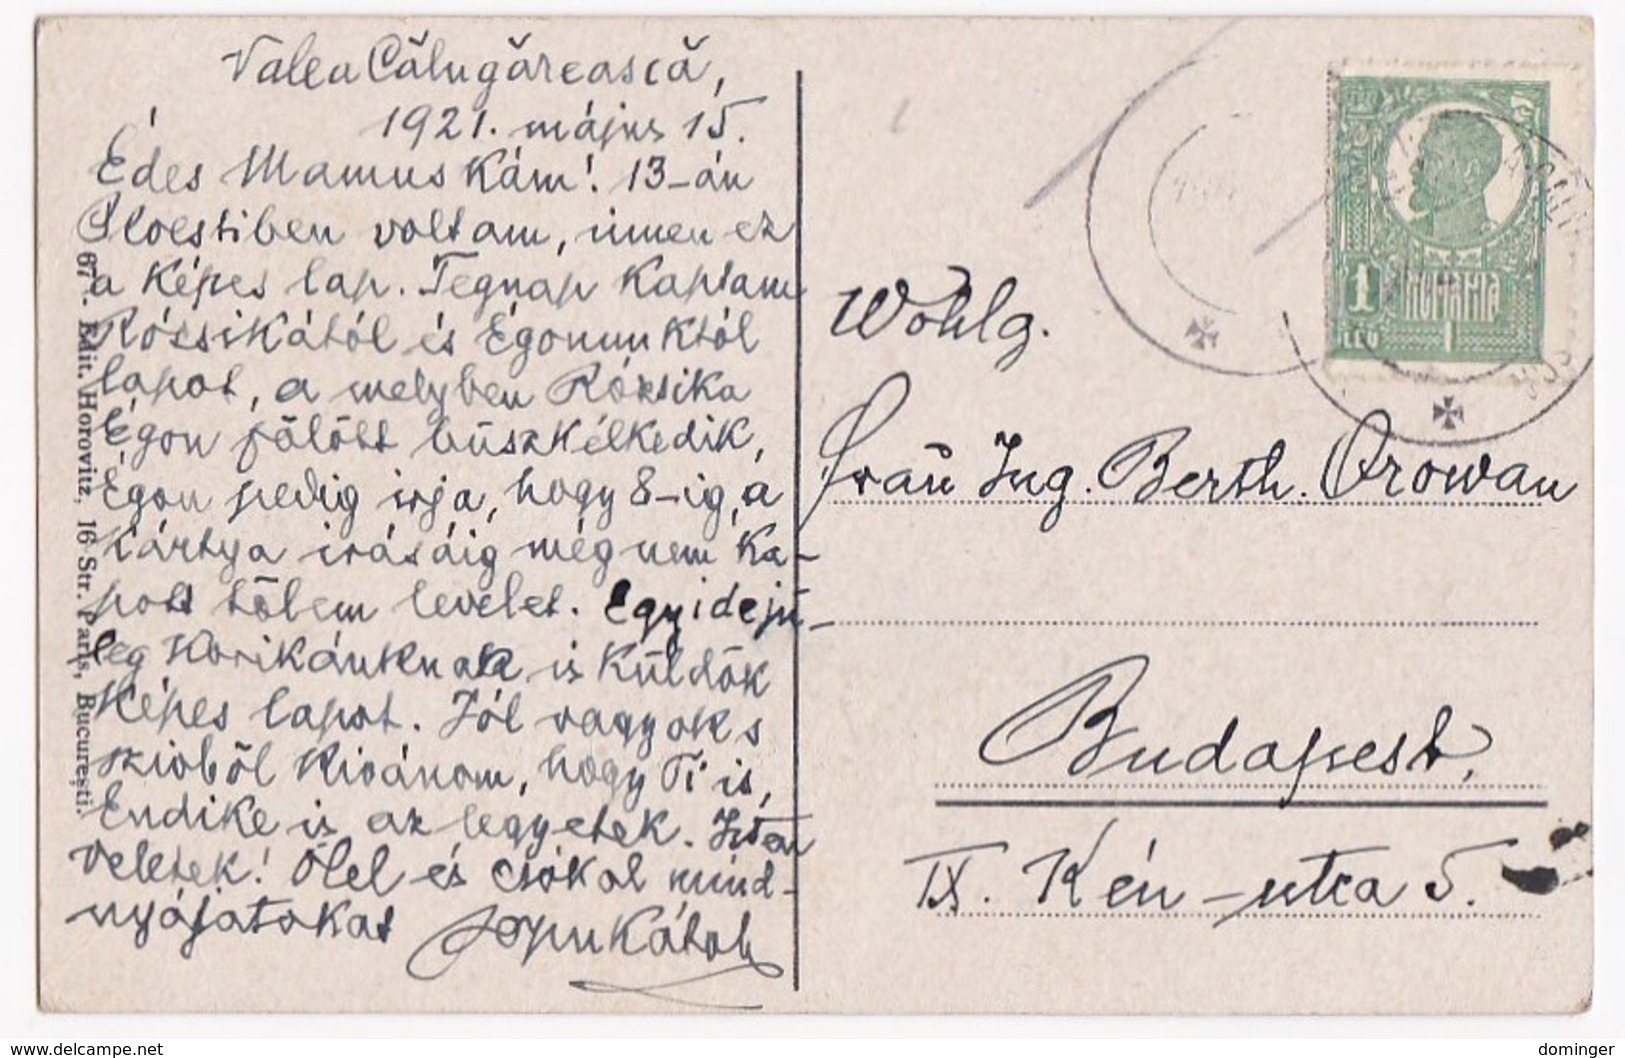 Valea Călugărească,
1921. május 15.
Édes Mamuskám! 13-án
Ploestiben voltam, innen ez
a képes lap. Tegnap kaptam
Rózsikától és Egonunktól
lapot, a melyben Rózsika
Egon fölött büszkélkedik,
Egon pedig irja, hogy 8-ig, a
kártya irásáig még nem ka-
pott tőlem levelet. Egyidejü-
leg Korikáuknak is küldök
képes lapot. Jól vagyok s
szivből kivánom, hogy Ti is,
Endike is az legyetek. Isten
veletek! Ölel és csókol mind-
nyájatokat Apukátok
67 - Edit. Horovitz, 16 Str. Paris, Bucureşti.
1 ROMANIA 1
LEU
Wohlg.
Frau Ing. Berth. Orowan
Budapest,
IX. Kén-utca 5.
dominger
www.delcampe.net